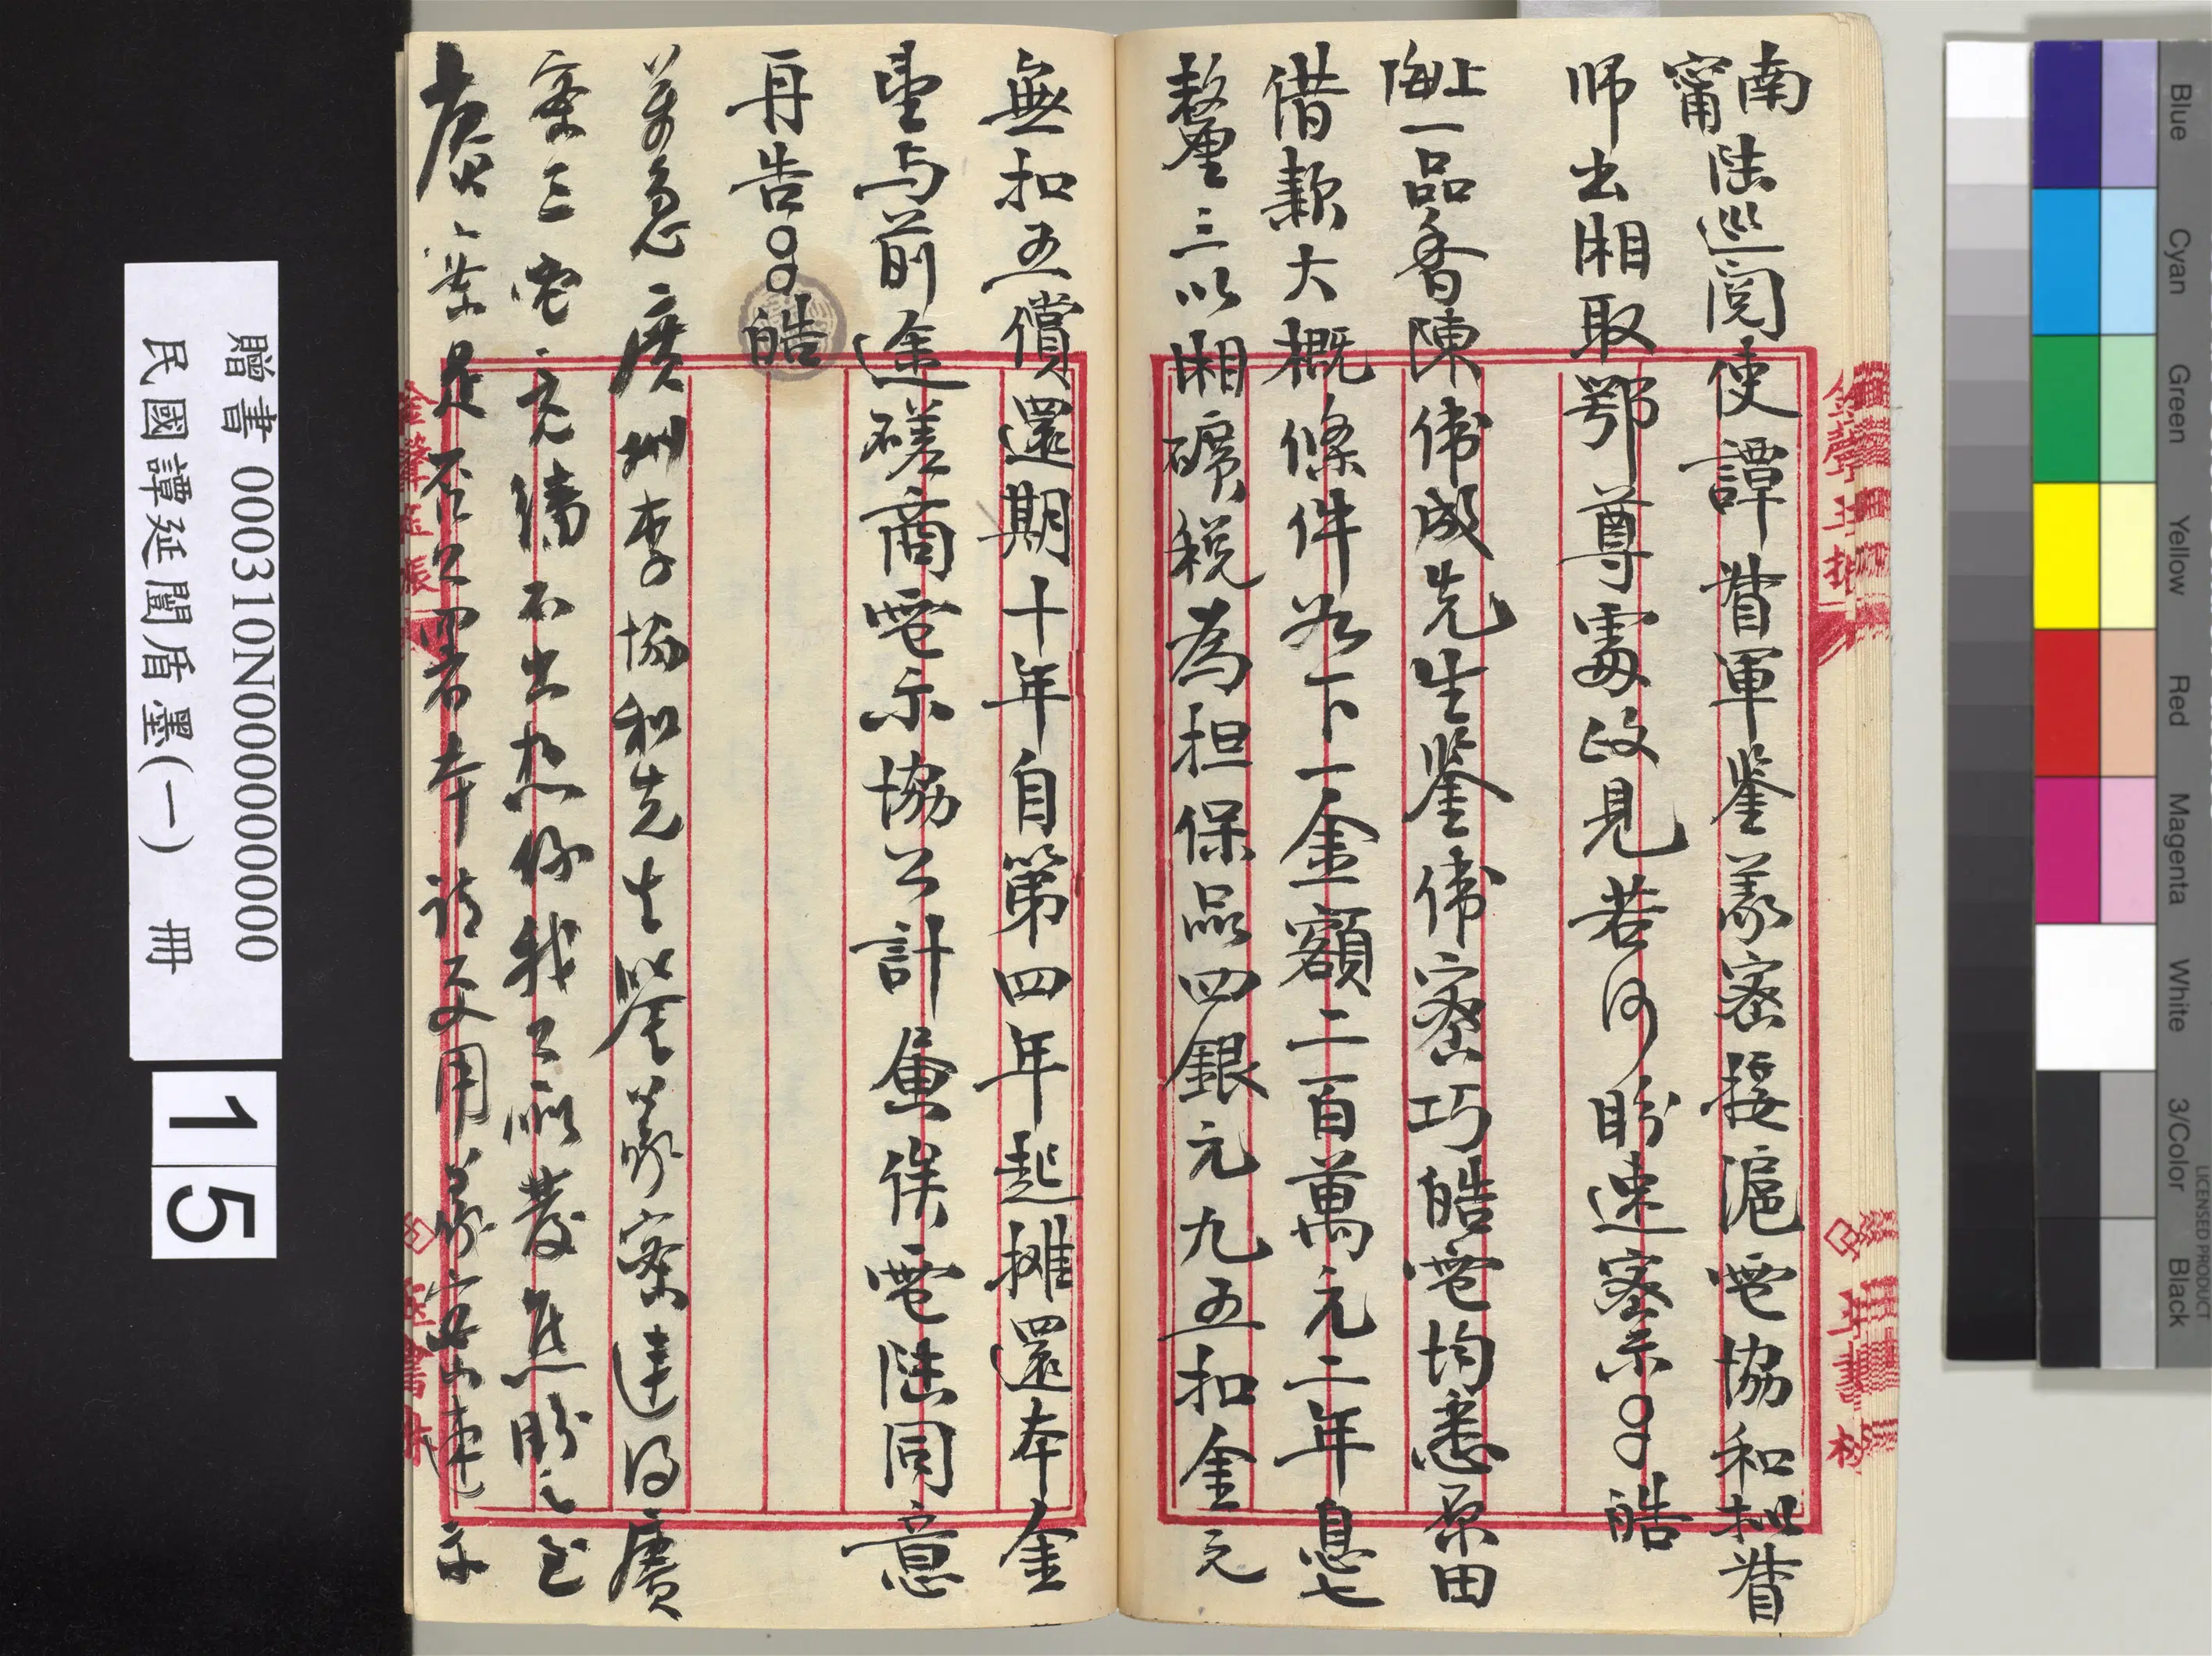 南寧陸巡閱使譚督軍鑒菉密接滬電協和擬督
師出湘取鄂尊處政見若何盼速密示○○皓
上海一品香陳偉成先生鑒偉密巧皓電均悉原田
借款大概條件如下一金額二百萬元二年息七
釐三以湘礦稅為担保品四銀元九五扣金元
無扣五償還期十年自第四年起攤還本金
望与前途磋商電示協公計畫俟電陸同意
再告○○皓
萬急廣州李協和先生鑒菉密連得廣
密三電竟繙不出想係我公所發焦盼之至
廣密是否只四者本請改用菉密速示
贈書 000310N000000000000
民國譚延闓盾墨(一) 冊
15
Blue
Cyan
Green
Yellow
Red
Magenta
White
3/Color
Black
LICENSED PRODUCT